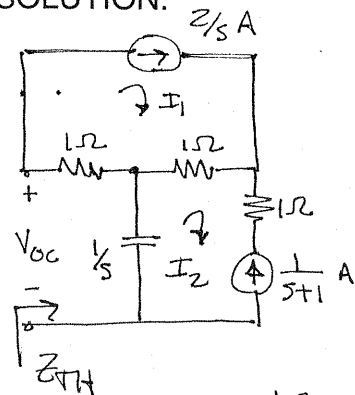 SOLUTION:
2/s A
I₁
1Ω 1Ω
+
1Ω
Voc 1/s I₂ 1/(s+1) A
-
ZTH